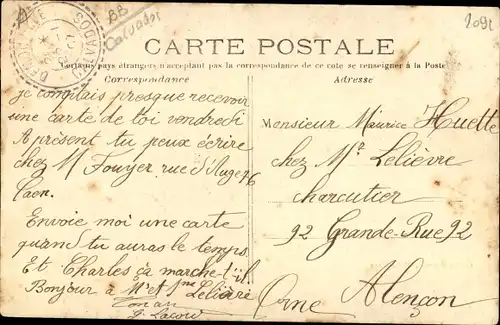 BB
Calvados
209L
CALVADOS
CARTE POSTALE
Certains pays étrangers n'acceptant pas la correspondance de ce côté se renseigner à la Poste
Correspondance
je comptais presque recevoir
une carte de toi vendredi
A présent tu peux écrire
chez M Fouyer rue d'Auge 76
Caen.
Envoie moi une carte
quand tu auras le temps.
Et Charles ça marche-t-il.
Bonjour à Mr et Mme Lelièvre
Ton ami
G. Lacour
Adresse
Monsieur Maurice Huette
chez Mr Lelièvre
charcutier
92 Grande-Rue 92
Alençon
Orne